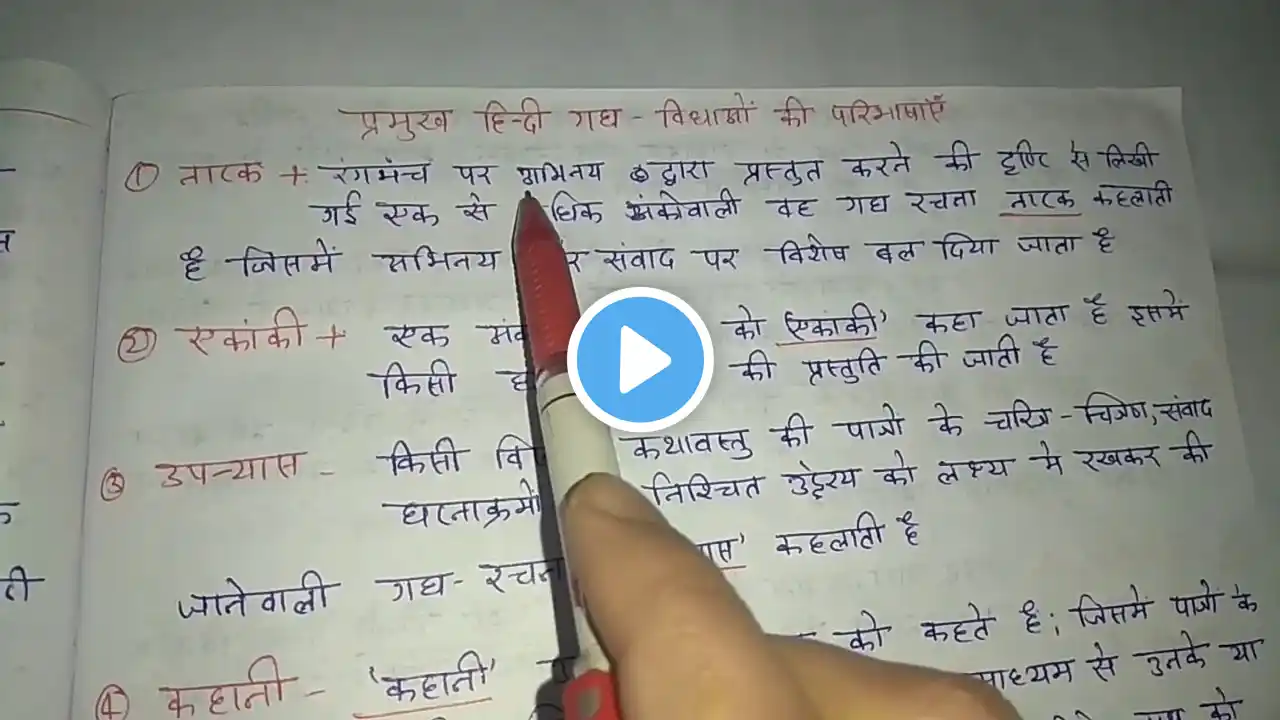 प्रमुख हिन्दी गद्य - विधाओं की परिभाषाएँ
① नाटक + रंगमंच पर अभिनय द्वारा प्रस्तुत करने की दृष्टि से लिखी
गई एक से धिक अंकोवाली वह गद्य रचना नाटक कहलाती
है जिसमें अभिनय र संवाद पर विशेष बल दिया जाता है
② एकांकी + एक को 'एकांकी' कहा जाता है इसमें
किसी की प्रस्तुति की जाती है
③ उपन्यास - किसी वि कथावस्तु की पात्रो के चरित्र - चित्रण, संवाद
घटनाक्रमो निश्चित उद्देश्य को लक्ष्य मे रखकर की
जानेवाली गद्य - रचना कहलाती है
④ कहानी - 'कहानी' को कहते हैं; जिसमें पात्रो के
माध्यम से उनके या
को
ती